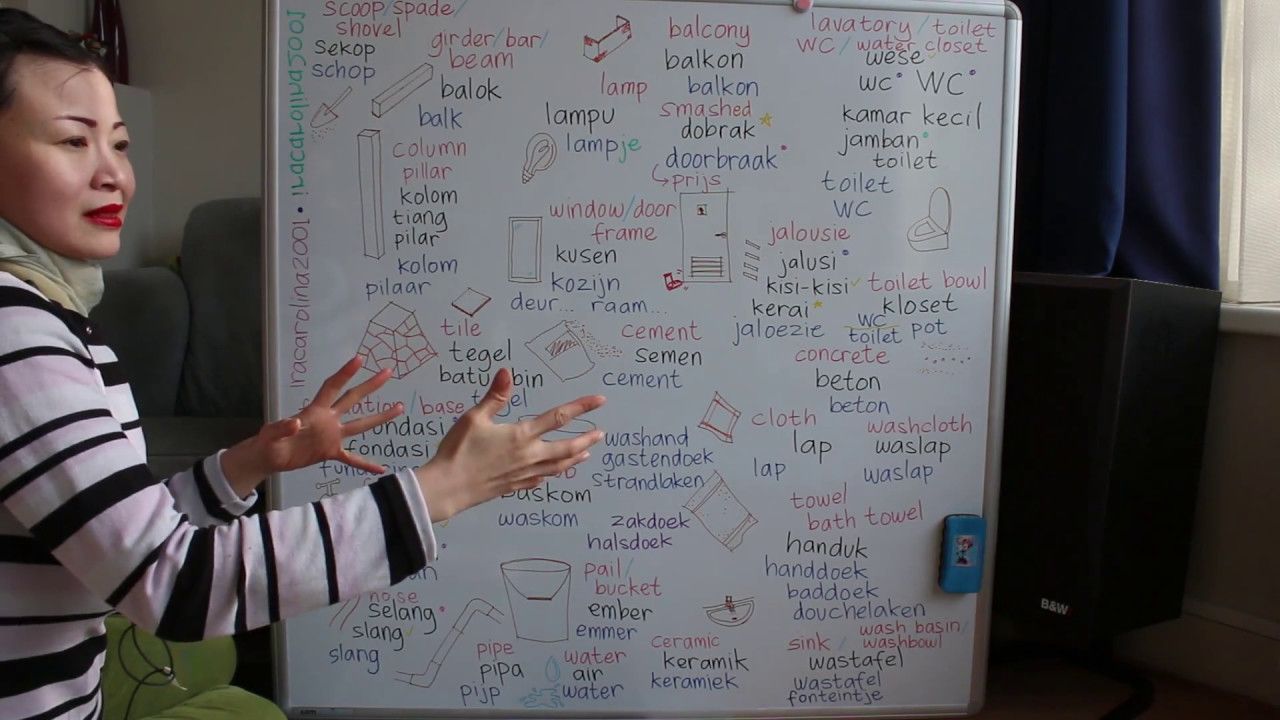 iracarolina2001 • iracarolina500J
scoop/spade/
shovel
sekop
schop
girder/bar/
beam
balok
balk
column
pillar
kolom
tiang
pilar
kolom
pilaar
lamp
lampu
lampje
balcony
balkon
balkon
smashed
dobrak
doorbraak
prijs
lavatory/toilet
WC/water closet
wese
wc WC
kamar kecil
jamban
toilet
toilet
WC
window/door
frame
kusen
kozijn
deur... raam...
jalousie
jalusi
kisi-kisi
kerai
jaloezie
toilet bowl
kloset
WC
toilet pot
tile
tegel
batu bin
tegel
cement
semen
cement
concrete
beton
beton
ation/base
fundasi
fondasi
washand
gastendoek
strandlaken
baskom
waskom
zakdoek
halsdoek
cloth
lap
lap
washcloth
waslap
waslap
towel
bath towel
handuk
handdoek
baddoek
douchelaken
hose
selang
slang
slang
pipe
pipa
pijp
pail/
bucket
ember
emmer
water
air
water
ceramic
keramik
keramiek
sink / wash basin/
washbowl
wastafel
wastafel
fonteintje
B&W